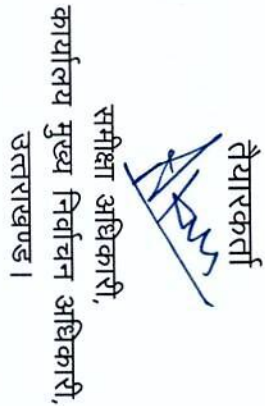 तैयारकर्ता
समीक्षा अधिकारी,
कार्यालय मुख्य निर्वाचन अधिकारी,
उत्तराखण्ड।